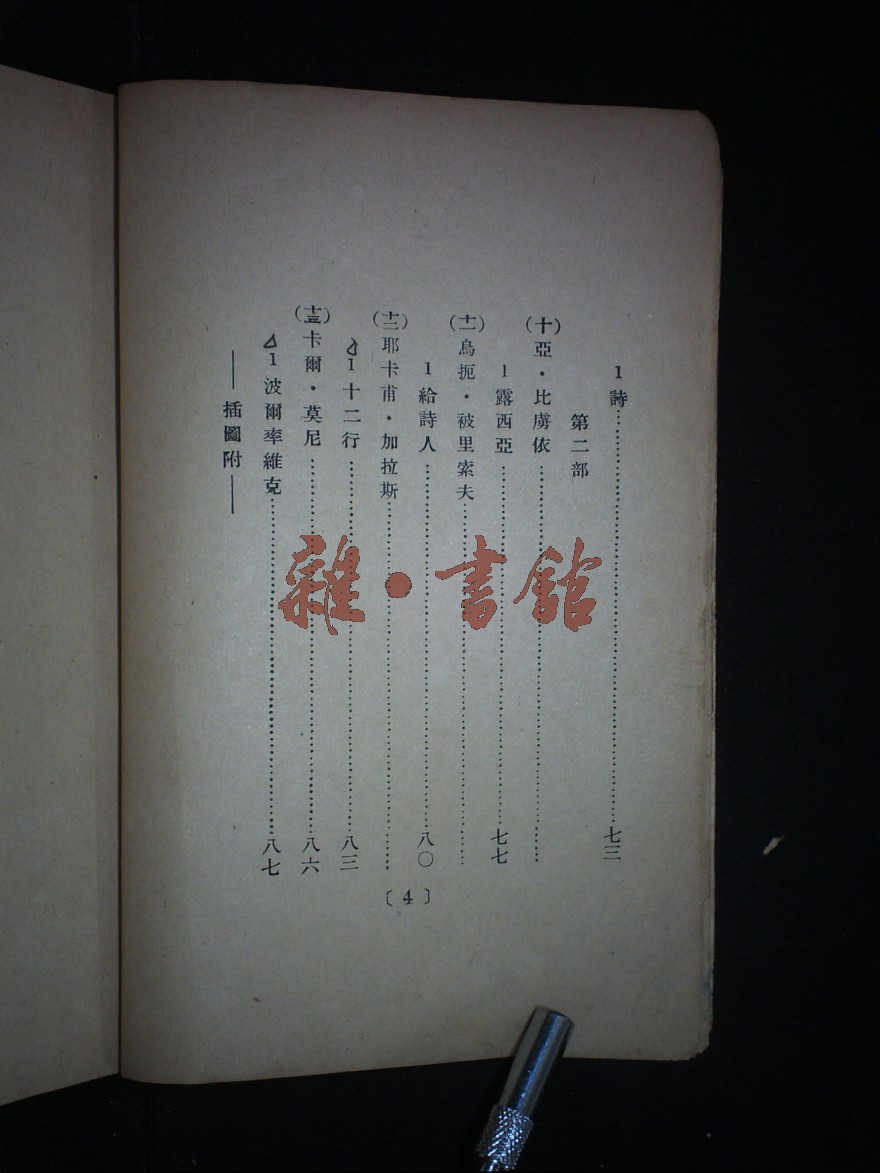 1詩……七三
第二部
(十)亞・比虜依……
1露西亞……七七
(十一)烏扼・被里索夫……
1給詩人……八〇
(十二)耶卡甫・加拉斯……
1十二行……八三
(十三)卡爾・莫尼……八六
1波爾率維克……八七
——插圖附——
〔4〕
雜・書館